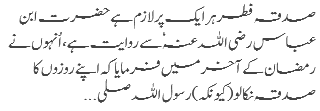 صدقہ فطر ہر ایک پر لازم ہے حضرت ابن
عباس رضی اللہ عنہٗ سے روایت ہے، اُنہوں نے
رمضان کے آخر میں فرمایا کہ اپنے روزوں کا
صدقہ نکالو (کیونکہ) رسول اللہ صلی ...